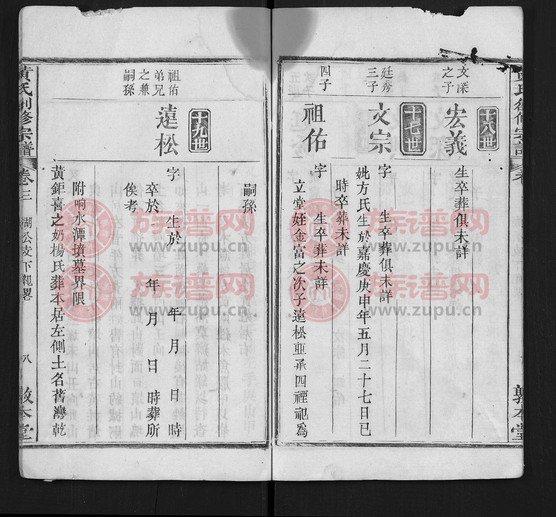 黃氏創修宗譜
卷
敦本堂
十八世
文深之子
宏義
生卒葬俱未詳
十七世
廷秀三子
文宗
字 生卒葬俱未詳
妣方氏生於嘉慶庚申年五月二十七日巳
時卒葬未詳
四子
祖佑
字 生卒葬未詳
立堂姪金富之次子遠松並承四裡祀為
嗣孫
十九世
祖佑弟兄之兼嗣孫
遠松
字 生於 年 月 日 時
卒於 年 月 日 時葬所
俟考
附响水潭墳墓界限
黃鉅喜之奶楊氏葬本居左側土名舊灣乾
黃氏創修宗譜
卷三
公支下親畧
八
敦本堂
族谱网
www.zupu.cn
族谱网
www.zupu.cn
族谱网
www.zupu.cn
族谱网
www.zupu.cn